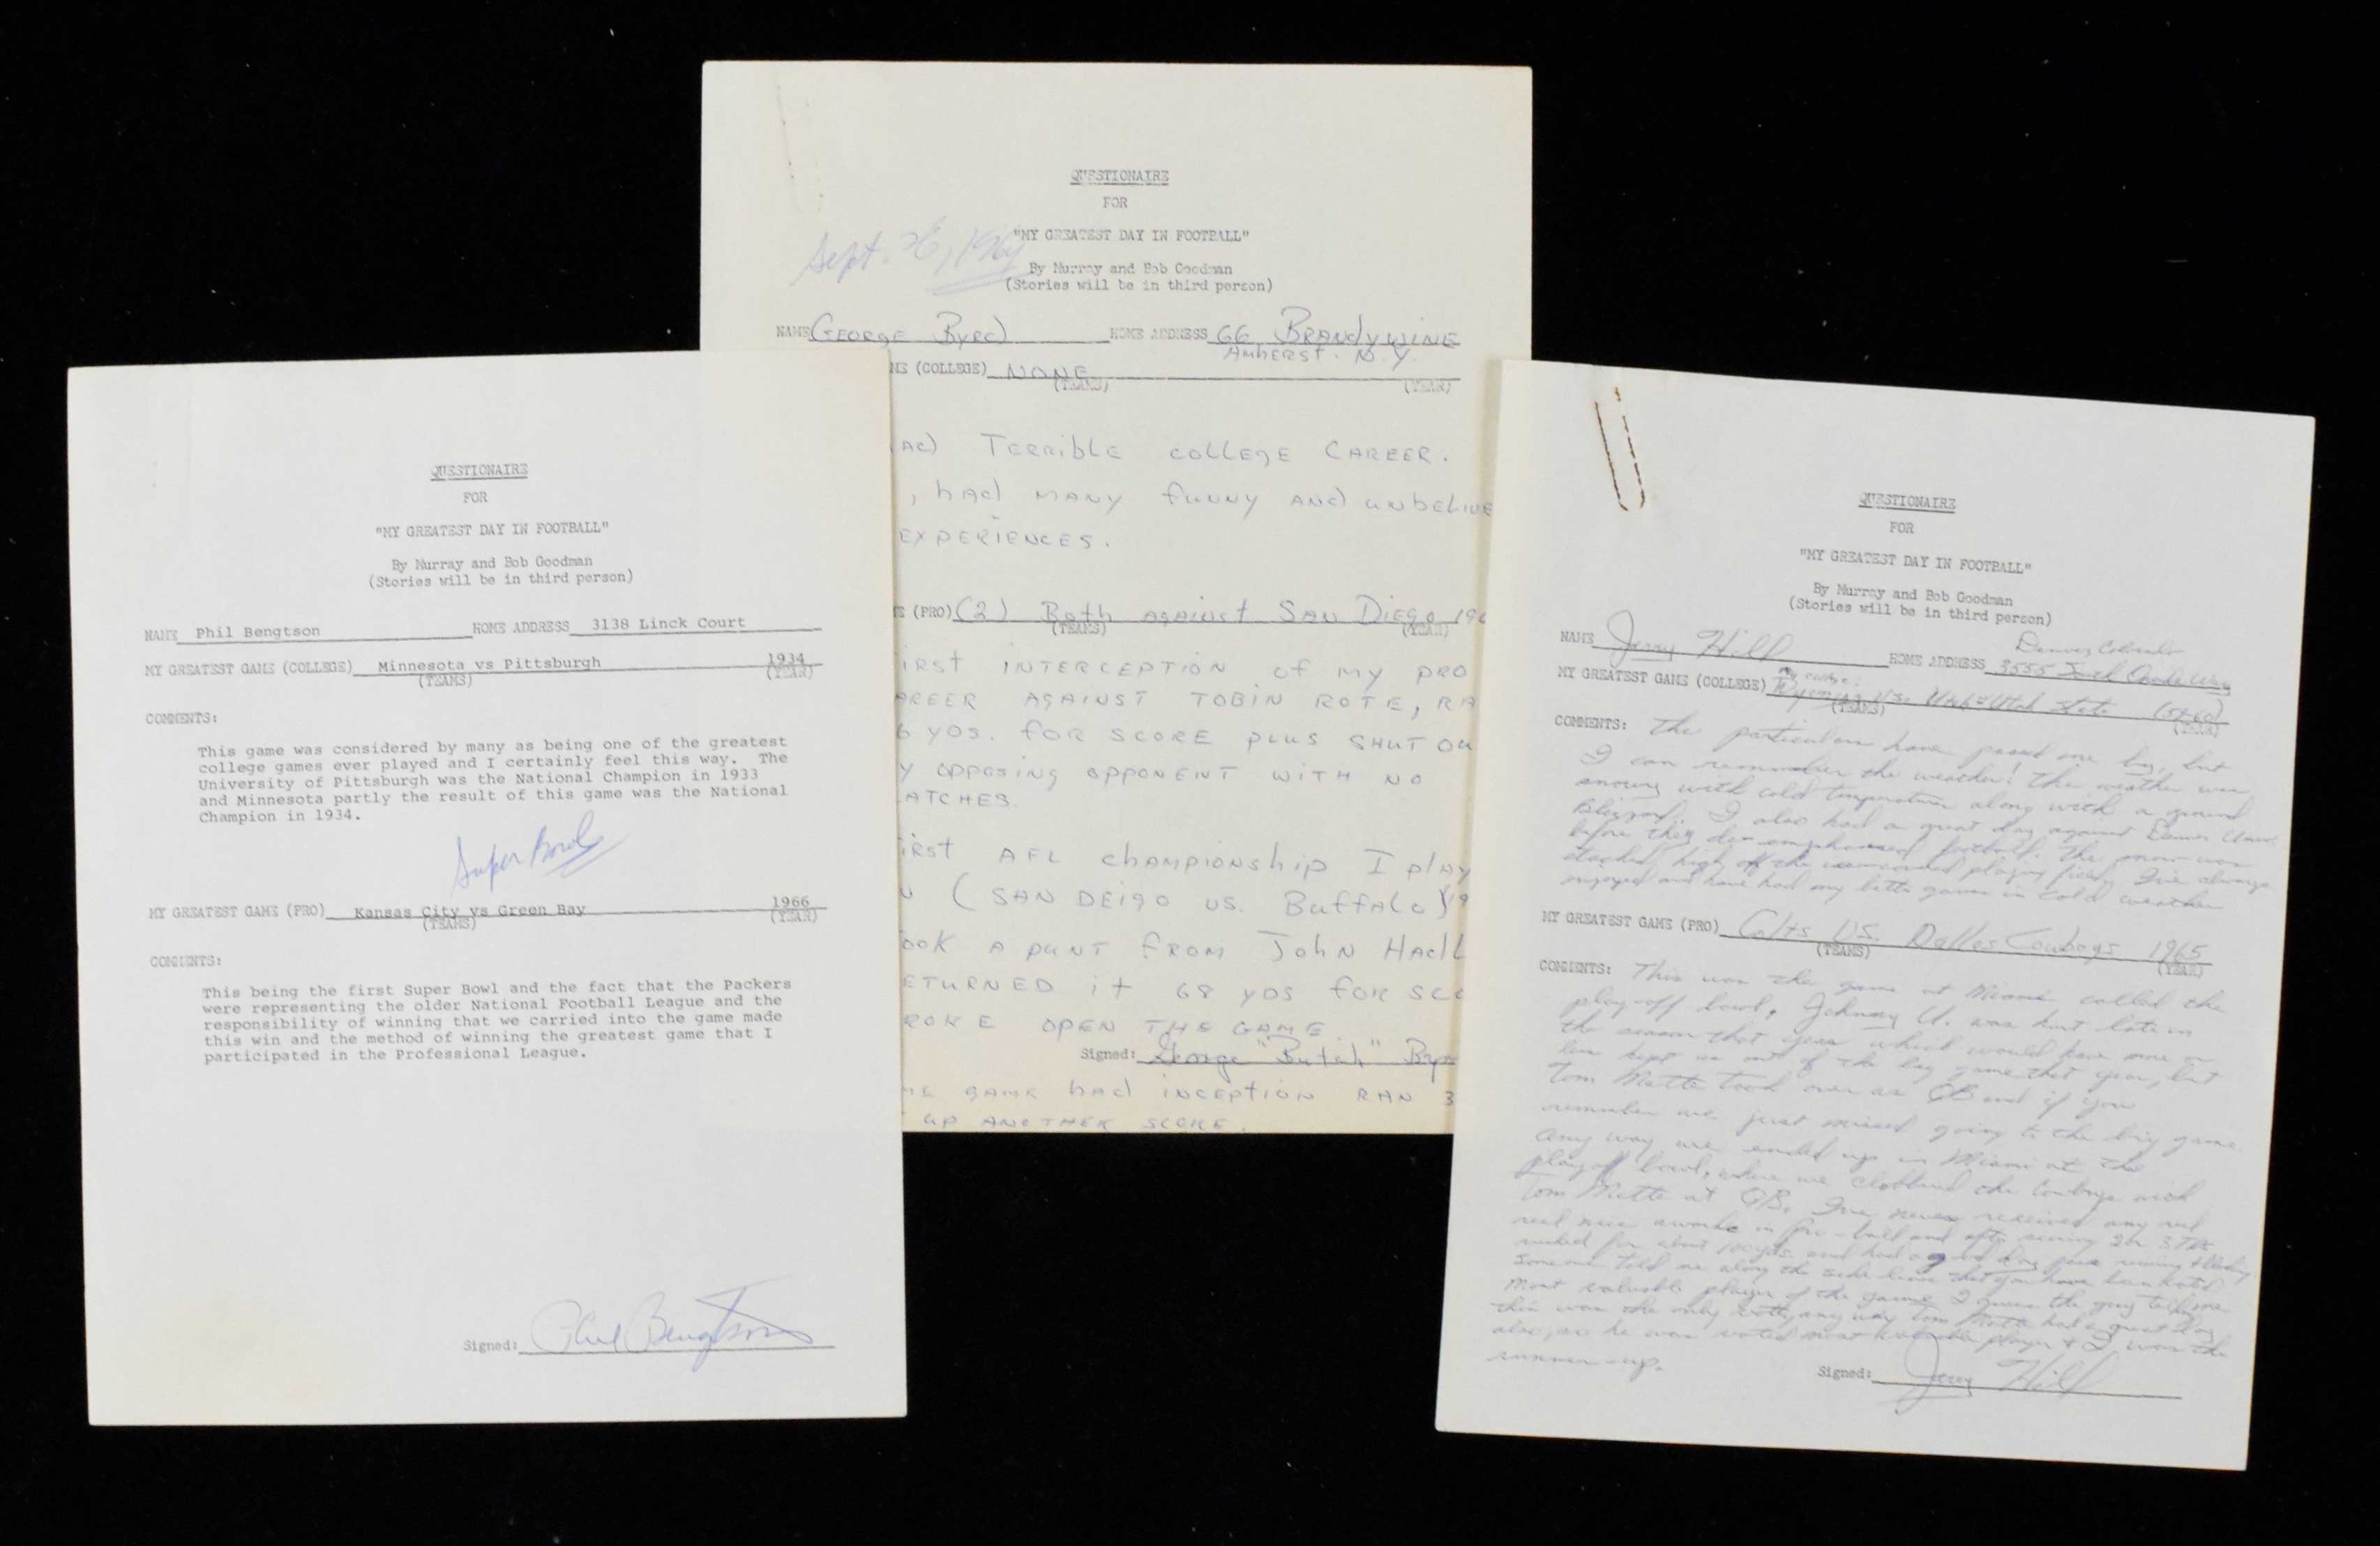 QUESTIONAIRE
FOR
"MY GREATEST DAY IN FOOTBALL"
By Murray and Bob Goodman
(Stories will be in third person)
NAME Phil Bengtson HOME ADDRESS 3138 Linck Court
MY GREATEST GAME (COLLEGE) Minnesota vs Pittsburgh 1934
(TEAMS) (YEAR)
COMMENTS:
This game was considered by many as being one of the greatest
college games ever played and I certainly feel this way. The
University of Pittsburgh was the National Champion in 1933
and Minnesota partly the result of this game was the National
Champion in 1934.
Super Bowl
MY GREATEST GAME (PRO) Kansas City vs Green Bay 1966
(TEAMS) (YEAR)
COMMENTS:
This being the first Super Bowl and the fact that the Packers
were representing the older National Football League and the
responsibility of winning that we carried into the game made
this win and the method of winning the greatest game that I
participated in the Professional League.
Signed: Phil Bengtson
QUESTIONAIRE
FOR
"MY GREATEST DAY IN FOOTBALL"
Sept. 26, 196
By Murray and Bob Goodman
(Stories will be in third person)
NAME George Byrd HOME ADDRESS 66 Brandywine
Amherst. N.Y.
(COLLEGE) NONE
(TEAMS) (YEAR)
Terrible college career.
, had many funny and unbelive
experiences.
(PRO) (2) Both against San Diego 196
(TEAMS) (YEAR)
irst interception of my pro
areer against Tobin Rote, ra
6 yds. for score plus shut ou
y opposing opponent with no
atches.
irst AFL championship I play
(San Deigo vs. Buffalo) 19
ook a punt from John Hadl
eturned it 68 yds for sco
roke open the game
Signed: George "Butch" Byr
game had inception ran 3
up another score.
QUESTIONAIRE
FOR
"MY GREATEST DAY IN FOOTBALL"
By Murray and Bob Goodman
(Stories will be in third person)
Denver Colorado
NAME Jerry Hill HOME ADDRESS 3555 South Way
MY GREATEST GAME (COLLEGE) Wyoming vs. Utah State
(TEAMS) (YEAR)
COMMENTS: The particulars have passed me by, but
I can remember the weather! The weather was
snowing with cold temperatures along with a ground
Blizzard. I also had a great day against Denver Univ.
before they de-emphasized football. The snow was
stacked high off the playing field. I've always
enjoyed and have had my better games in cold weather
MY GREATEST GAME (PRO) Colts VS. Dallas Cowboys 1965
(TEAMS) (YEAR)
COMMENTS: This was the game at Miami called the
play-off bowl, Johnny U. was hurt late in
the season that year which would have more or
less kept us out of the big game that year, but
Tom Matte took over as QB and if you
remember we just missed going to the big game.
Any way we ended up in Miami at the
playoff bowl, where we clobbered the Cowboys with
Tom Matte at QB. I've never received any real
real nice awards in pro-ball and after scoring 2 or 3 TDs
rushed for about 100 yds. and had a good day pass
someone told me along the side lines that you have been voted
most valuable player of the game. I guess the guy telling me
this was the only vote, any way Tom Matte had a great day
also, so he was voted most valuable player & I was the
runner-up.
Signed: Jerry Hill